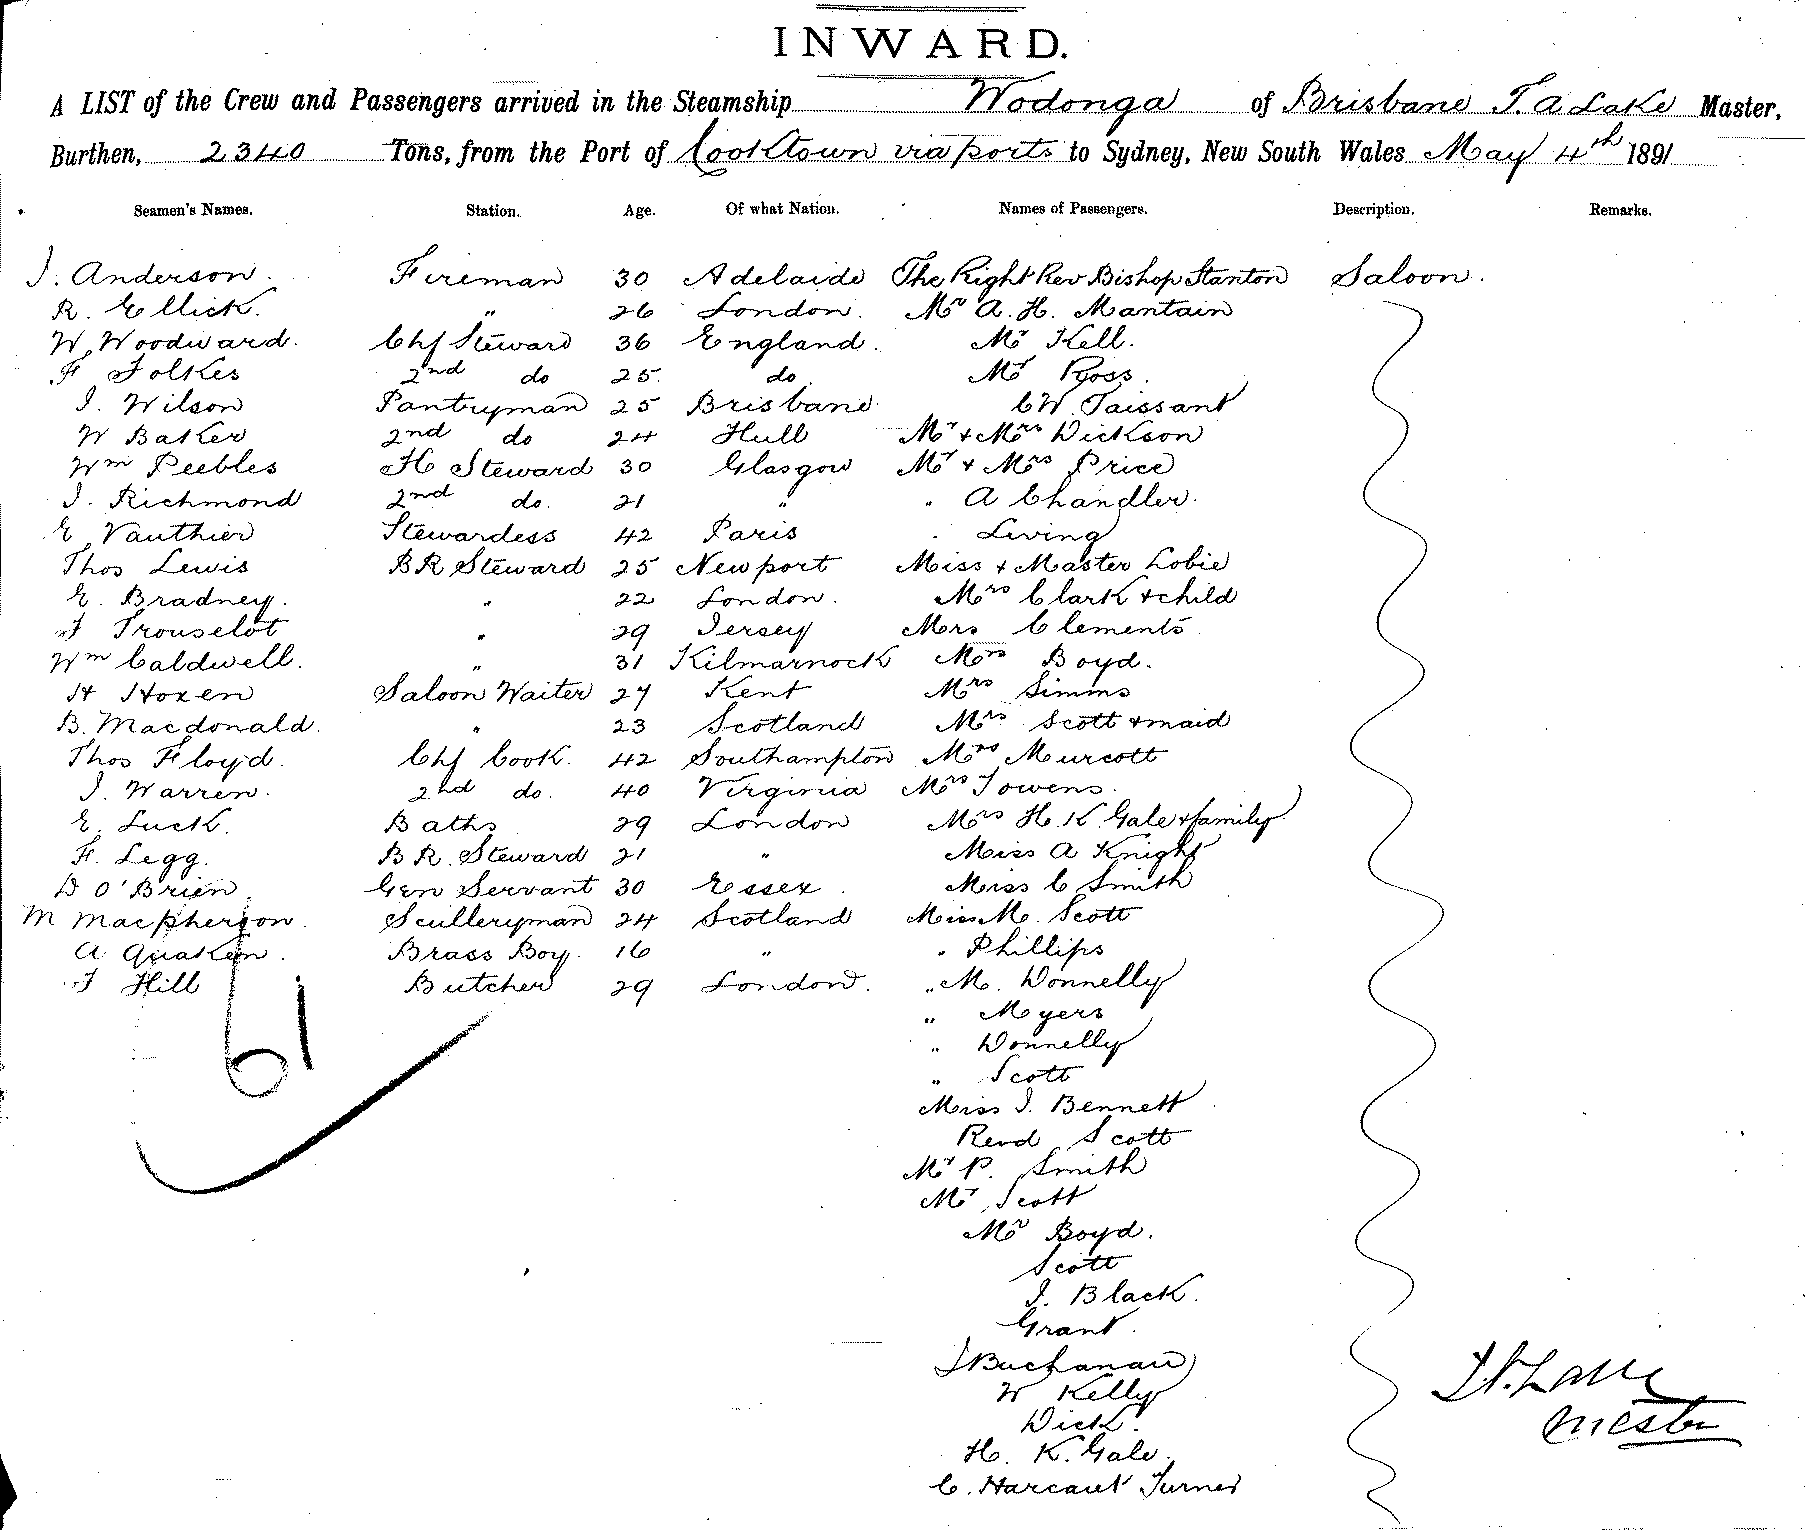 INWARD.
A LIST of the Crew and Passengers arrived in the Steamship Wodonga of Brisbane T. A Lake Master,
Burthen, 2340 Tons, from the Port of Cooktown via ports to Sydney, New South Wales May 4th 1891
Seamen's Names. Station. Age. Of what Nation. Names of Passengers. Description. Remarks.
J. Anderson. Fireman 30 Adelaide The Right Rev Bishop Stanton Saloon.
R. Ellick. " 26 London. Mr A. H. Mantain
W. Woodward. Chf Steward 36 England. Mr Kell.
F Folkes 2nd do 25 do Mr Ross.
J. Wilson Pantryman 25 Brisbane C W. Taissant
W Baker 2nd do 24 Hull Mr + Mrs Dickson
Wm Peebles H Steward 30 Glasgow Mr + Mrs Price
J. Richmond 2nd do. 21 " " A Chandler.
E. Vauthier Stewardess 42 Paris " Living
Thos Lewis BR Steward 25 Newport Miss + Master Lobie
E. Bradney. " 22 London. Mrs Clark + child
F Trouselot " 29 Jersey Mrs Clements
Wm Caldwell. " 31 Kilmarnock Mrs Boyd.
H Hoxen Saloon Waiter 27 Kent Mrs Simms
B. Macdonald. " 23 Scotland Mrs Scott + maid
Thos Floyd. Chf Cook. 42 Southampton Mrs Murcott
J. Warren. 2nd do. 40 Virginia Mrs J owens.
E. Luck. Baths 29 London Mrs H. K. Gale + family
F. Legg. B R. Steward 21 " Miss A Knight
D O'Brien. Gen Servant 30 Essex. Miss C Smith
M Macpherson. Sculleryman 24 Scotland Miss M. Scott
A Quaken. Brass Boy. 16 " " Phillips
F Hill Butcher 29 London. " M. Donnelly
61
" Myers
" Donnelly
" Scott
Miss J. Bennett
Revd Scott
Mr P. Smith
Mr Scott
Mr Boyd.
Scott
J. Black.
Grant.
J Buchanan
W Kelly
Dick.
H. K. Gale.
C. Harcaut Turner
Master